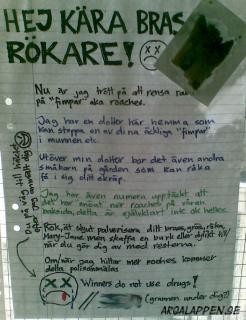 HEJ KÄRA BRASS
RÖKARE!
Nu är jag trött på att rensa
på "fimpar" aka roaches.
Jag har en dotter här hemma som
kan stoppa en av dina äckliga "fimpar"
i munnen etc.
Utöver min dotter bor det även andra
småbarn på gården som kan råka
få i sig ditt skräp.
Jag har även numera upptäckt att
det har snöat ner roaches på våran
baksida, detta är självklart inte ok heller.
Rök, ät, skjut, pulverisera ditt brass, gräs, röka,
Mary-Jane men skaffa en burk eller dylikt till/
när du gör dig av med resterna.
Om/när jag hittar mer roaches kommer
detta polisanmälas
Winners do not use drugs!
ARGALAPPEN.SE